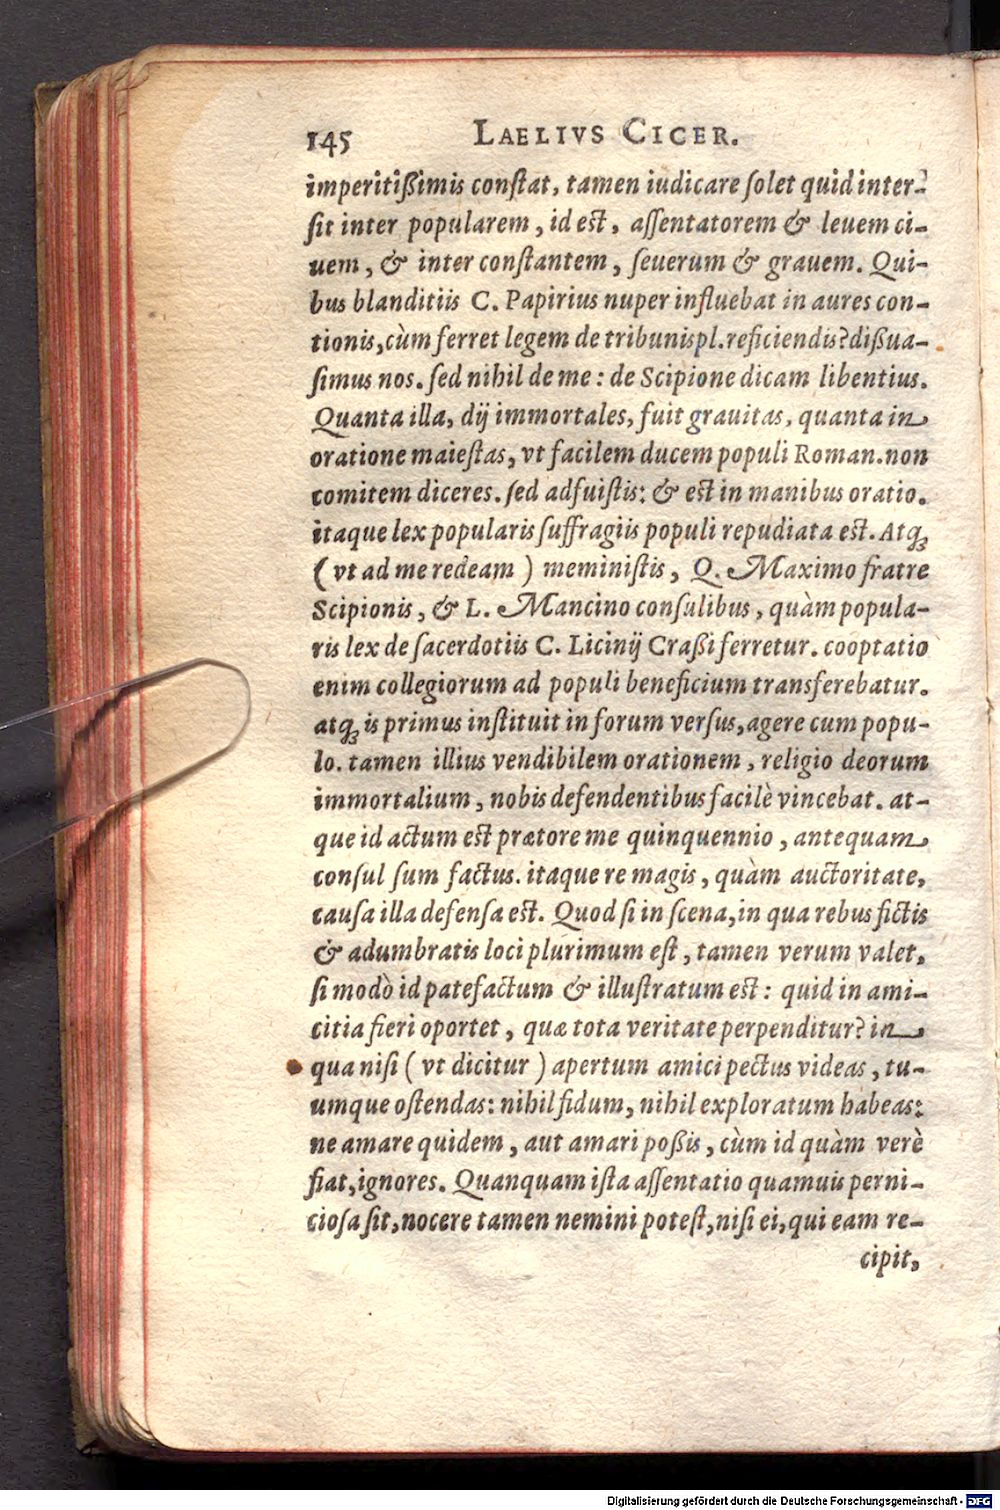 145 LAELIVS CICER.
imperitißimis constat, tamen iudicare solet quid inter-
sit inter popularem, id est, assentatorem & leuem ci-
uem, & inter constantem, seuerum & grauem. Qui-
bus blanditiis C. Papirius nuper influebat in aures con-
tionis, cùm ferret legem de tribunis pl. reficiendis? dißua-
simus nos. sed nihil de me: de Scipione dicam libentius.
Quanta illa, dij immortales, fuit grauitas, quanta in
oratione maiestas, vt facilem ducem populi Roman. non
comitem diceres. sed adfuistis: & est in manibus oratio.
itaque lex popularis suffragiis populi repudiata est. Atq;
(vt ad me redeam) meministis, Q. Maximo fratre
Scipionis, & L. Mancino consulibus, quàm popula-
ris lex de sacerdotiis C. Licinij Craßi ferretur. cooptatio
enim collegiorum ad populi beneficium transferebatur.
atq; is primus instituit in forum versus, agere cum popu-
lo. tamen illius vendibilem orationem, religio deorum
immortalium, nobis defendentibus facilè vincebat. at-
que id actum est prætore me quinquennio, antequam
consul sum factus. itaque re magis, quàm auctoritate,
causa illa defensa est. Quod si in scena, in qua rebus fictis
& adumbratis loci plurimum est, tamen verum valet,
si modò id patefactum & illustratum est: quid in ami-
citia fieri oportet, quæ tota veritate perpenditur? in
qua nisi (vt dicitur) apertum amici pectus videas, tu-
umque ostendas: nihil fidum, nihil exploratum habeas:
ne amare quidem, aut amari poßis, cùm id quàm verè
fiat, ignores. Quanquam ista assentatio quamuis perni-
ciosa sit, nocere tamen nemini potest, nisi ei, qui eam re-
cipit,
Digitalisierung gefördert durch die Deutsche Forschungsgemeinschaft - DFG